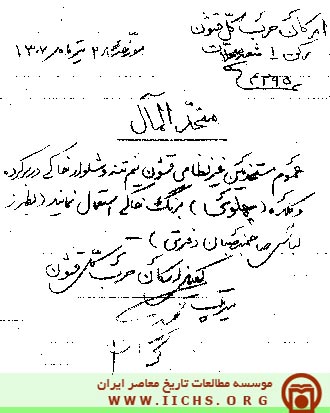 ارکان حرب کل قشون
رکن ۱ شعبه
مورخه ۲۸ تیر ماه ۱۳۰۷
متحد المآل
عموم مستخدمین غیرنظامی قشون نیم تنه و شلوار خاکی در بر کرده
و کلاه (پهلوی) برنگ خاکی استعمال نمایند (بطرز
لباس صاحبمنصبان دفتری) –
کفیل ارکان حرب کل قشون
سرتیپ
موسسه مطالعات تاریخ معاصر ایران
WWW.IICHS.ORG